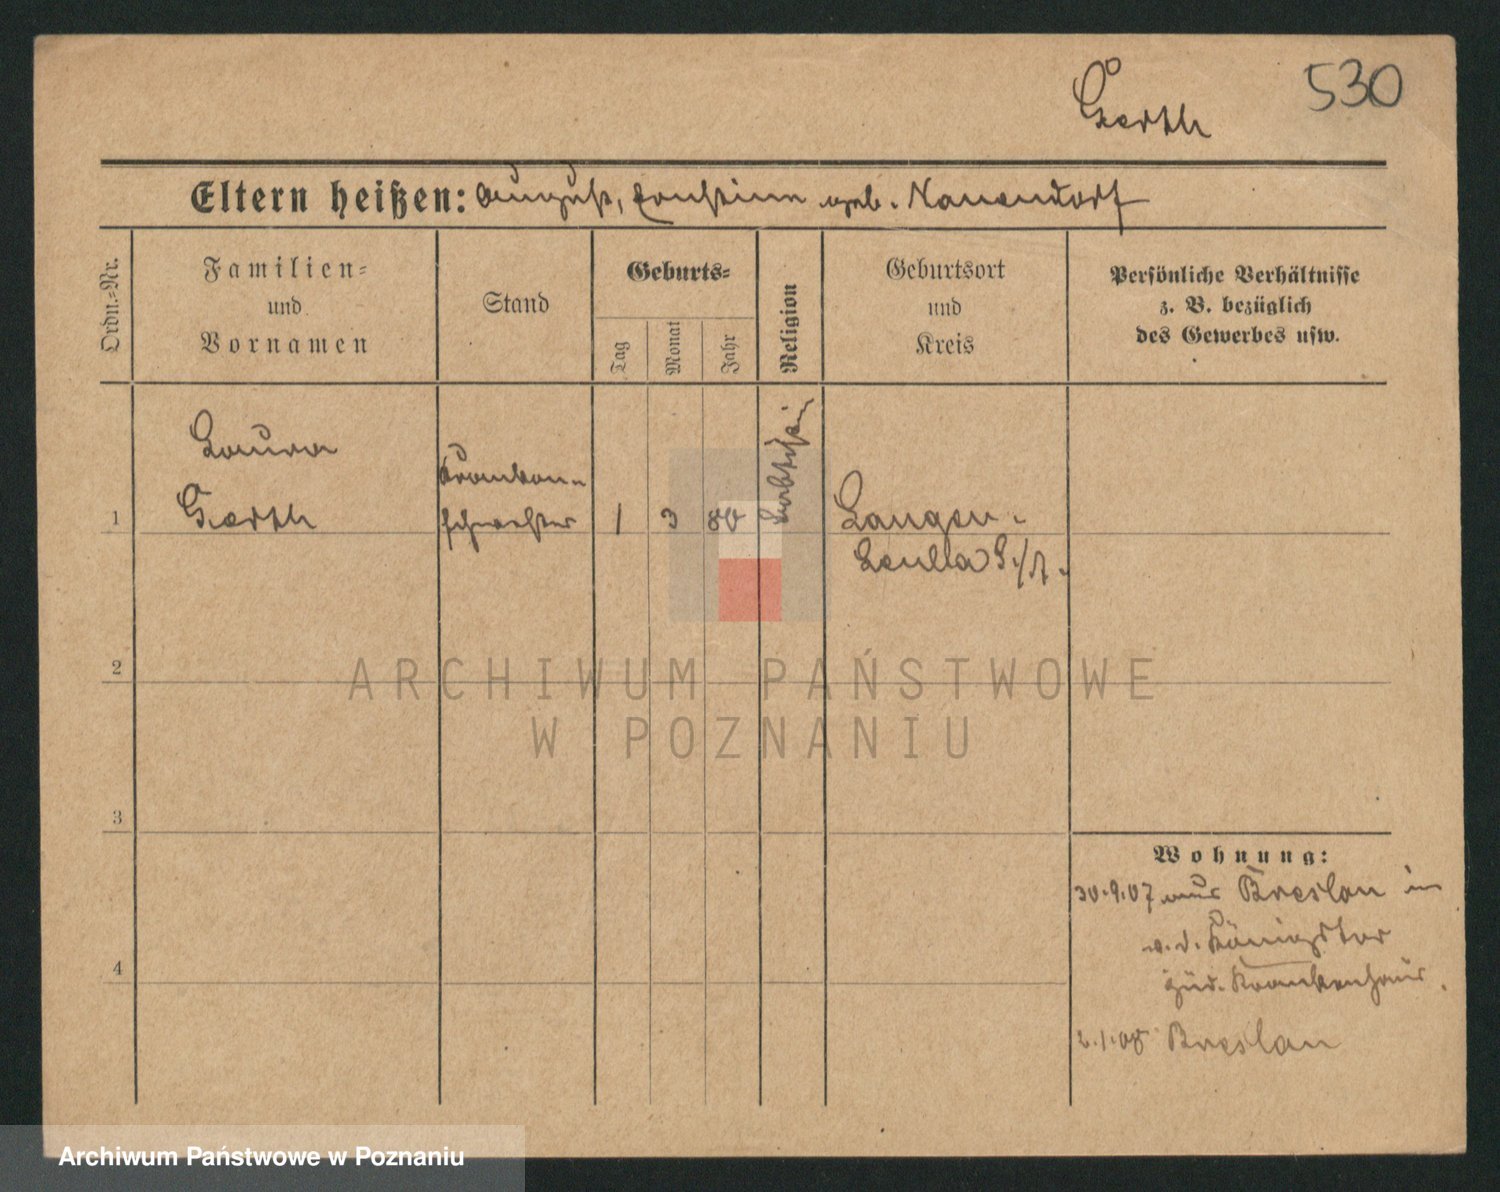 530
Gerth
Eltern heißen: August, Ernstine geb. Nauendorf
Ordn.=Nr.
Familien=
und
Vornamen
Stand
Geburts=
Tag
Monat
Jahr
Religion
Geburtsort
und
Kreis
Persönliche Verhältnisse
z. B. bezüglich
des Gewerbes usw.
Laura
Gerth
Kranken-
schwester
1
1
3
80
Langen-
Leuba S./A.
2
3
4
Wohnung:
30.9.07 aus Breslau in
v. d. Königstor
jüd. Krankenhaus.
2.1.08 Breslau
ARCHIWUM PAŃSTWOWE
W POZNANIU
Archiwum Państwowe w Poznaniu